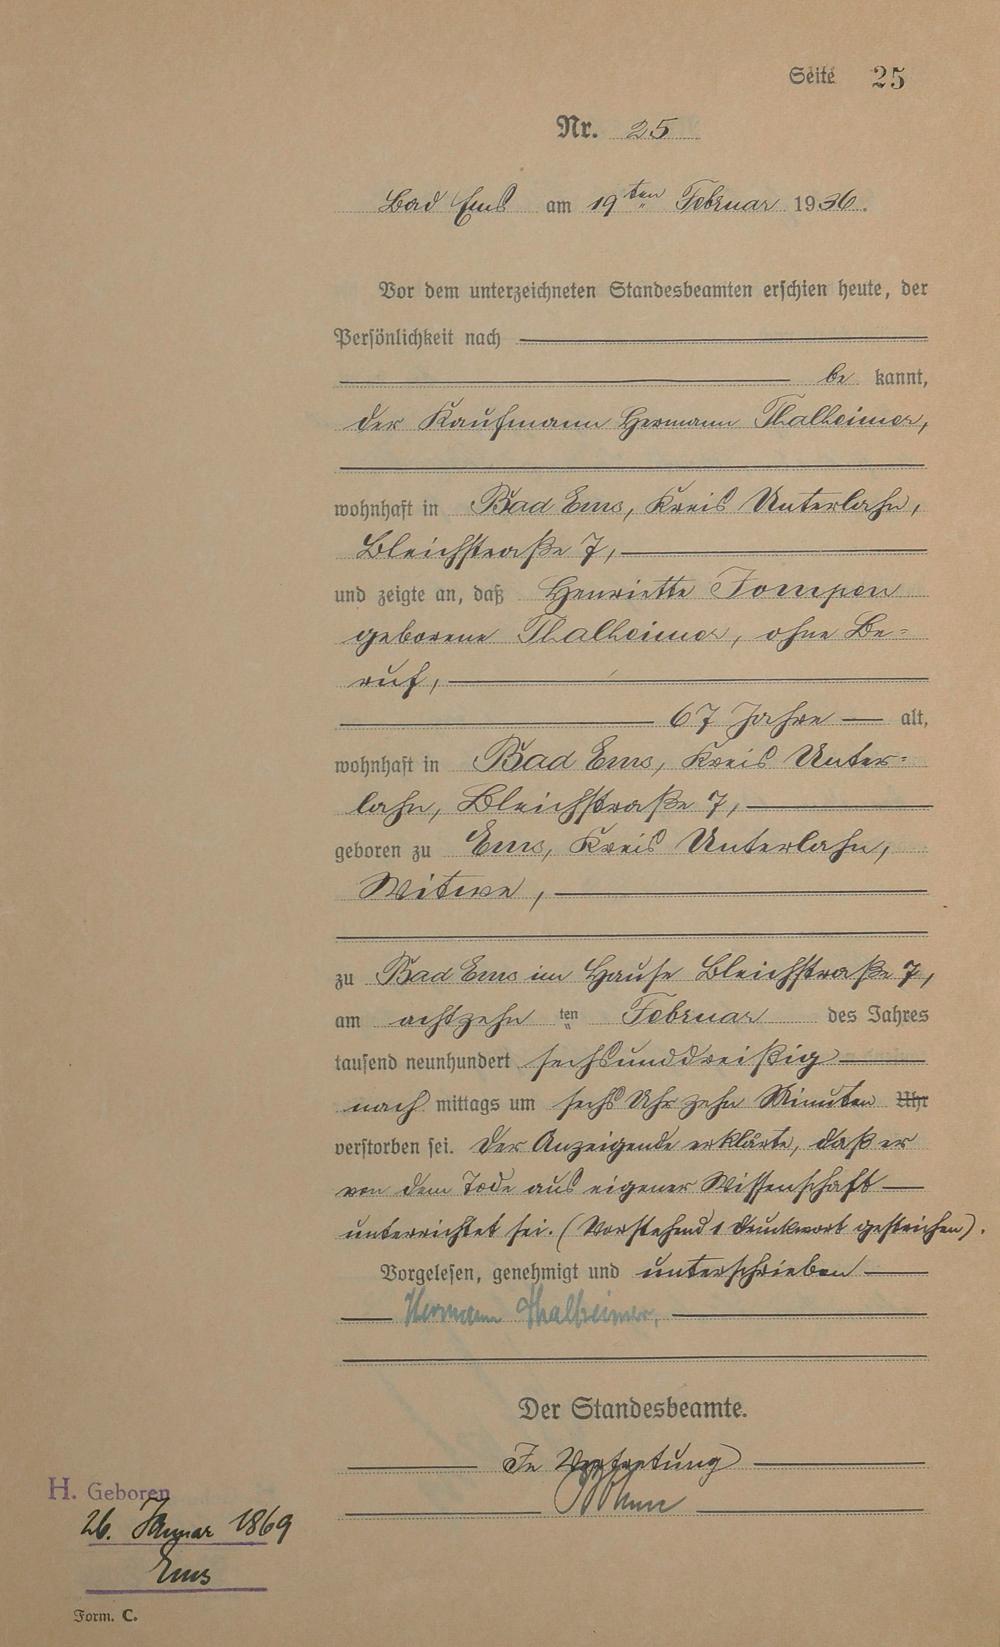 Seite 25
Nr. 25
Bad Ems am 19ten Februar 1936.
Vor dem unterzeichneten Standesbeamten erschien heute, der
Persönlichkeit nach
be kannt,
der Kaufmann Hermann Thalheimer,
wohnhaft in Bad Ems, Kreis Unterlahn,
Bleichstraße 7,
und zeigte an, daß Henriette
geborene Thalheimer, ohne Be=
ruf,
67 Jahre alt,
wohnhaft in Bad Ems, Kreis Unter=
lahn, Bleichstraße 7,
geboren zu Ems, Kreis Unterlahn,
Witwe,
zu Bad Ems im Hause Bleichstraße 7,
am achtzehn ten Februar des Jahres
tausend neunhundert sechsunddreißig
nach mittags um sechs Uhr zehn Minuten Uhr
verstorben sei. Der Anzeigende erklärte, daß er
von dem Tode aus eigener Wissenschaft
unterrichtet sei. (Vorstehend 1 Druckwort gestrichen).
Vorgelesen, genehmigt und unterschrieben
Hermann Thalheimer,
Der Standesbeamte.
In Vertretung
H. Geboren
26. Januar 1869
Ems
Form. C.